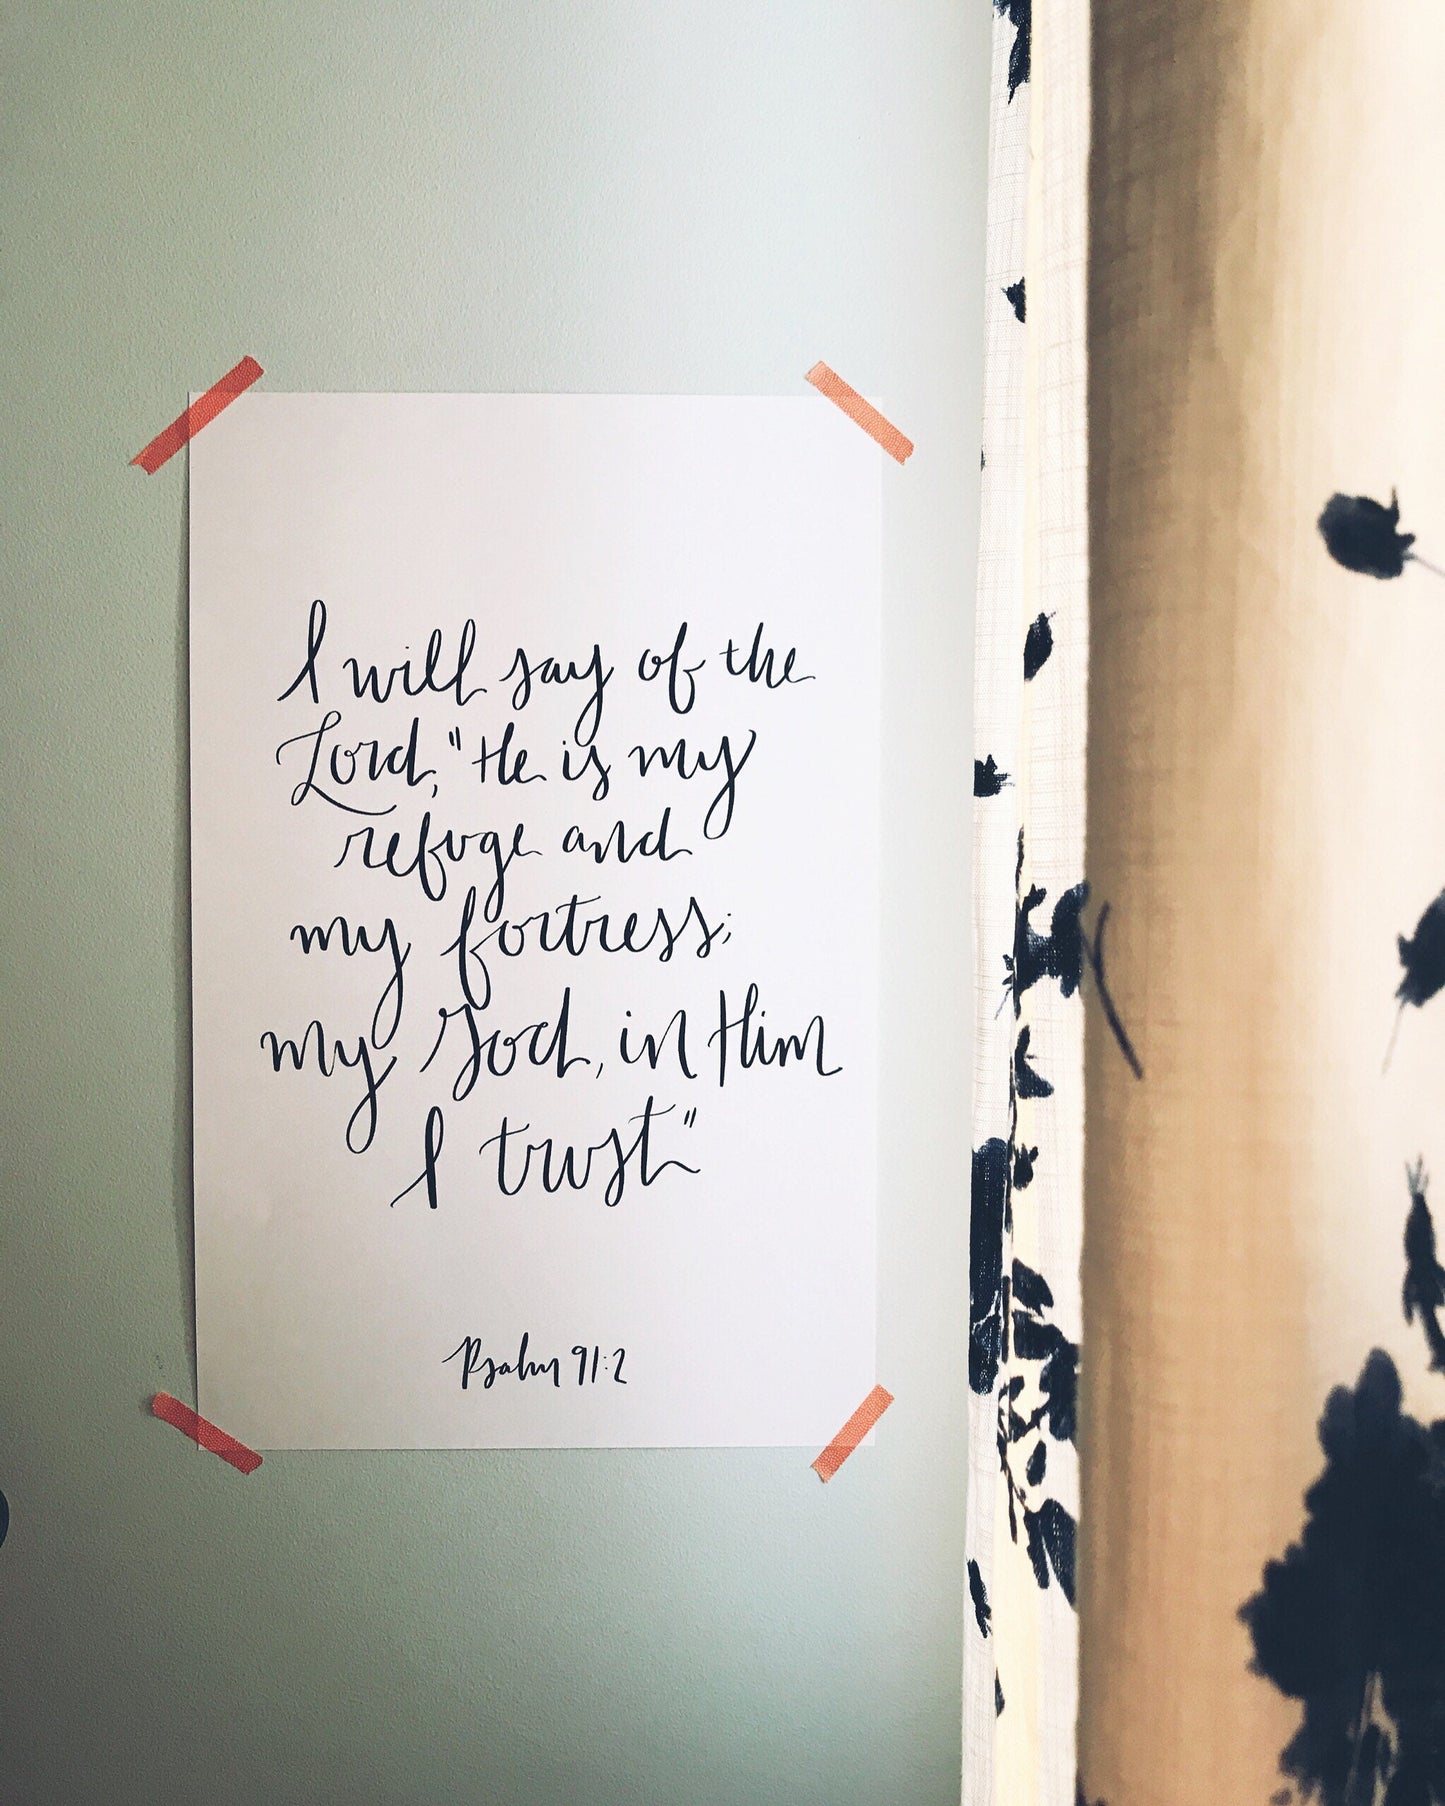 I will say of the
Lord, "He is my
refuge and
my fortress;
my God, in Him
I trust"
Psalm 91:2